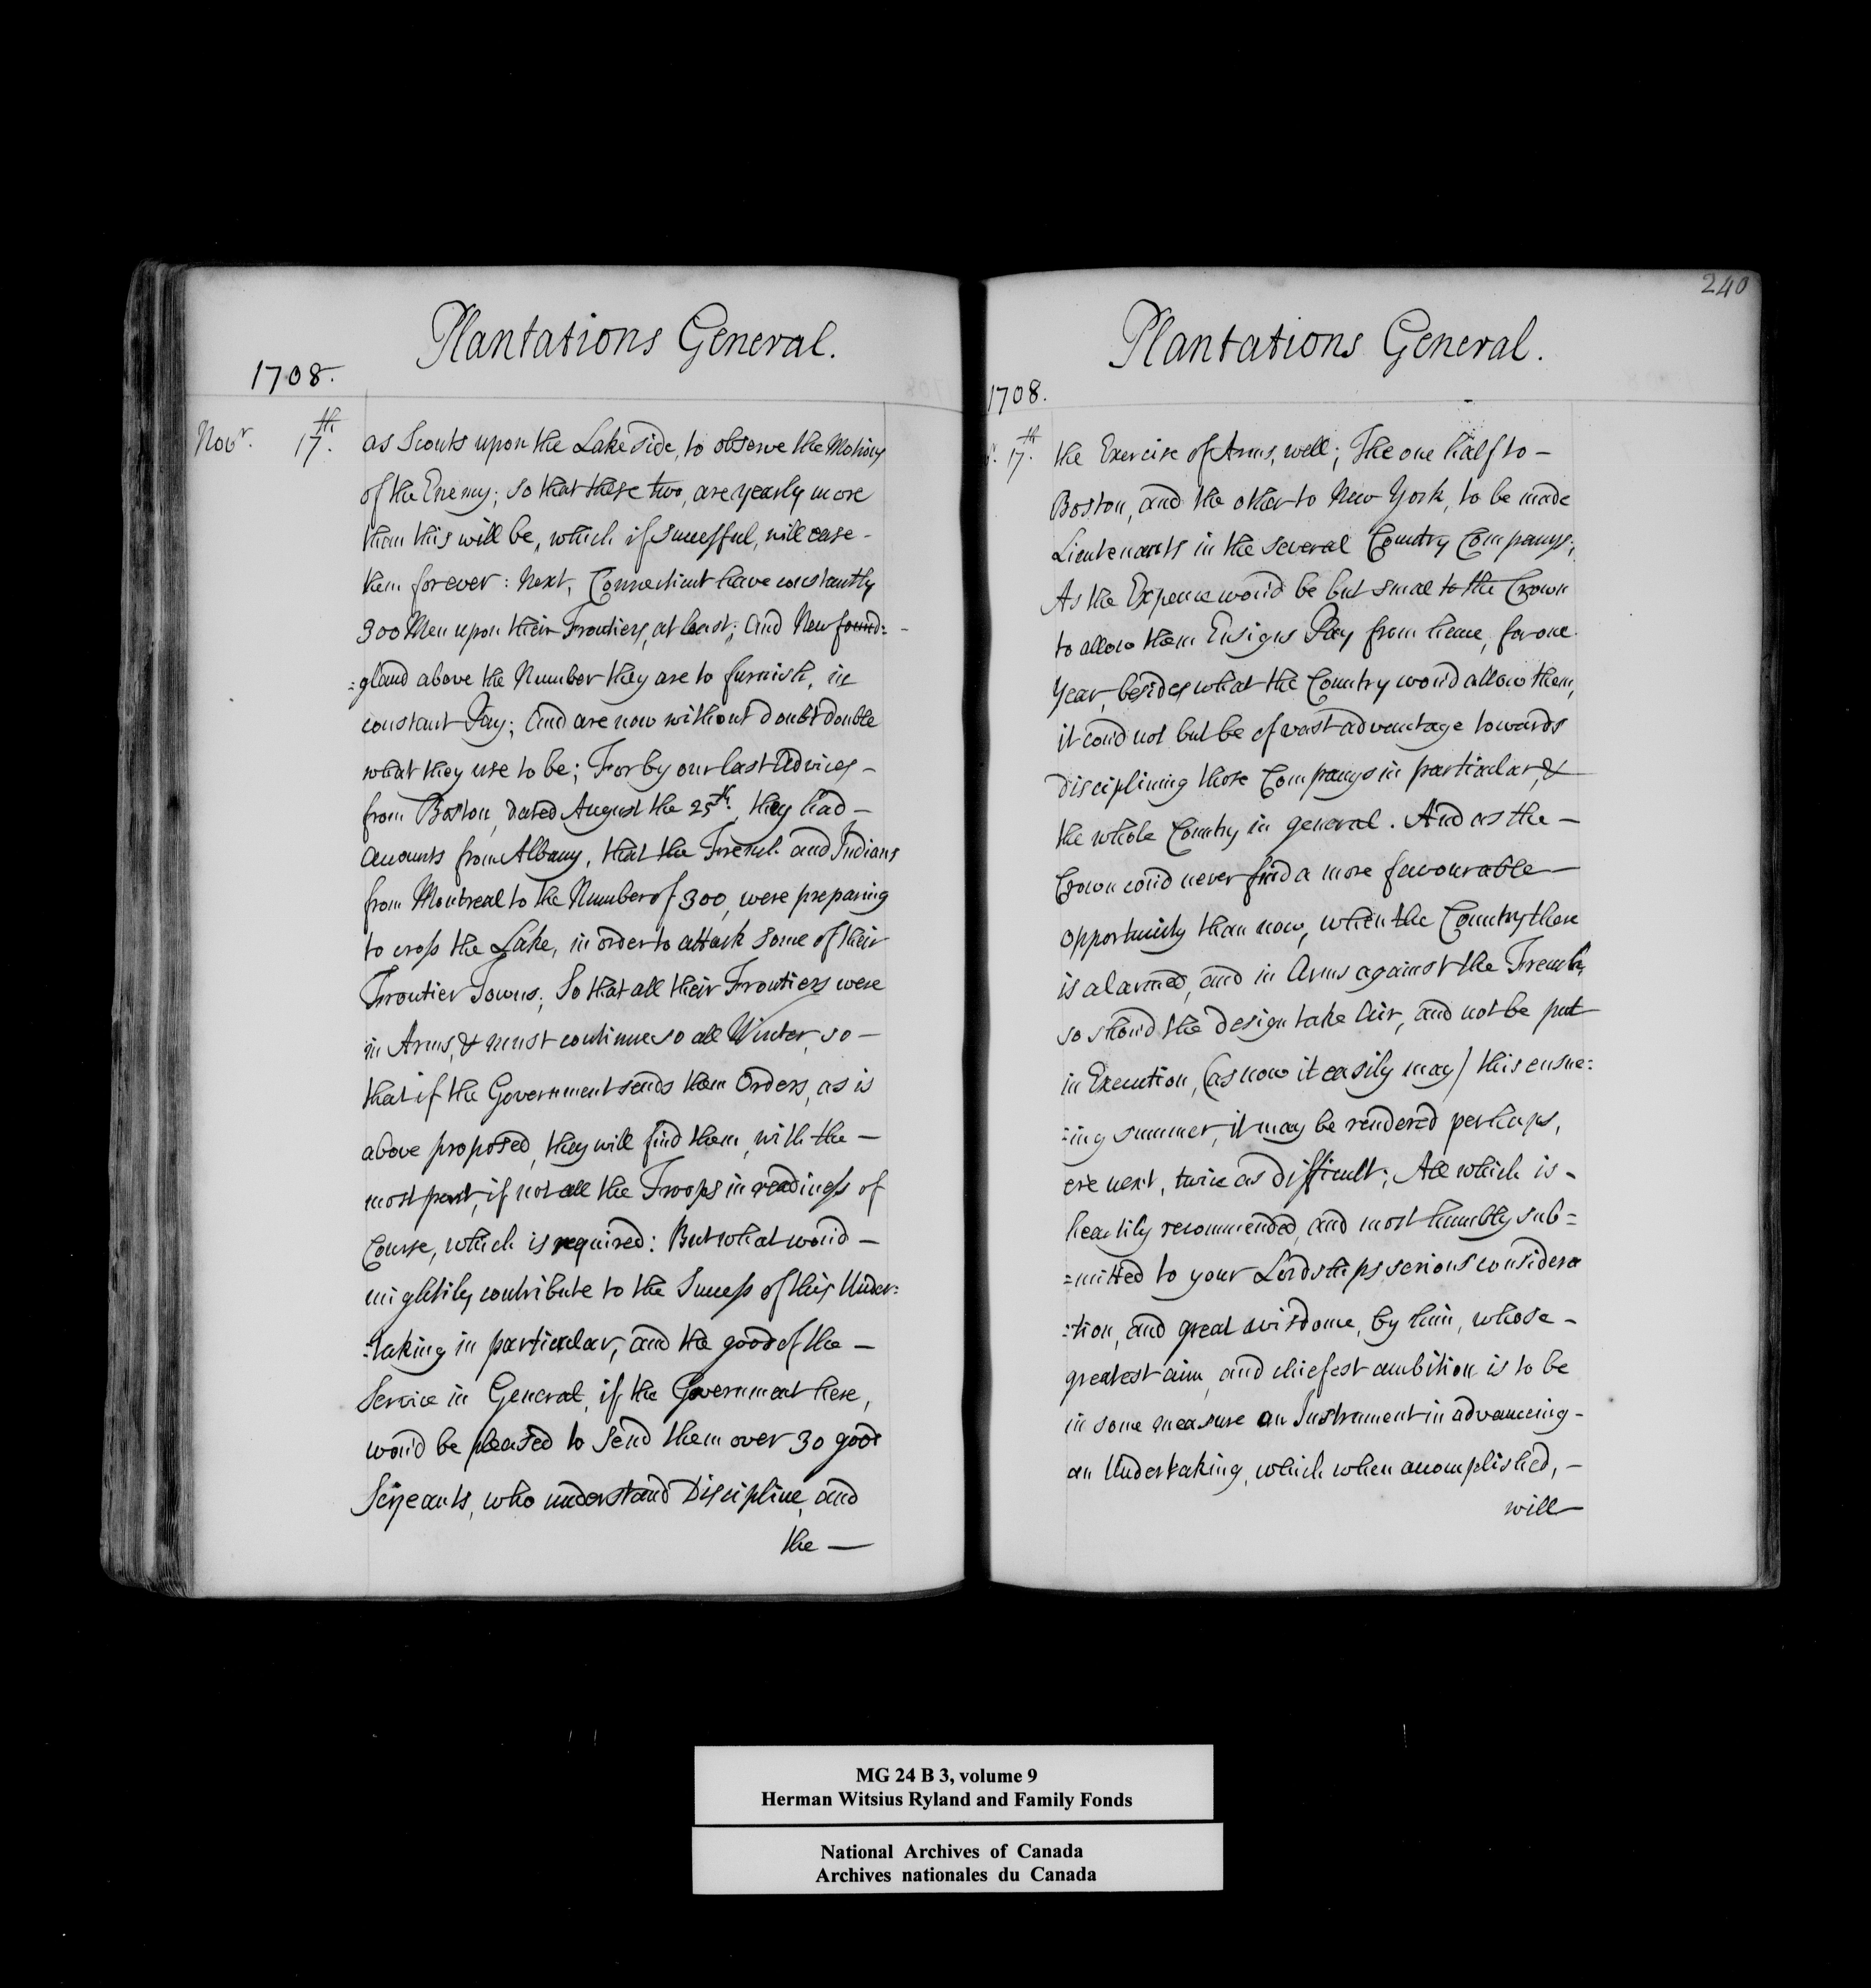 Plantations General.
1708.
Novr. 17th.
as Scouts upon the Lake side, to observe the Motions
of the Enemy; so that these two, are yearly more
than this will be, which if Successful, will ease -
them forever: Next, Connecticut have constantly
300 Men upon their Frontiers, at least; And New found= -
=gland above the Number they are to furnish, in
constant Pay; And are now without doubt double
what they use to be; For by our last Advices -
from Boston, dated August the 25th. they had -
Accounts from Albany, that the French and Indians
from Montreal to the Number of 300, were preparing
to cross the Lake, in order to attack some of their
Frontier Towns; So that all their Frontiers were
in Arms, & must continue so all Winter, so -
that if the Government sends them Orders, as is
above proposed, they will find them, with the -
most part, if not all the Troops in readiness of
Course, which is required: But what wou'd -
mightily contribute to the Success of this Under=
=taking in particular, and the good of the -
Service in General, if the Government here,
wou'd be pleased to send them over 30 good
Serjeants, who understand Discipline, and
the -
240
Plantations General.
1708.
r. 17th.
the Exercise of Arms, well; The one half to -
Boston, and the other to New York, to be made
Lieutenants in the several Country Companys;
As the Expence wou'd be but smal to the Crown
to allow them Ensigns Pay from hence, for one
Year, besides what the Country wou'd allow them,
it cou'd not but be of vast advantage towards
disciplining those Companys in particular, &
the whole Country in general. And as the -
Crown cou'd never find a more favourable -
opportunity than now, when the Country there
is alarmed, and in Arms against the French,
so shou'd the design take Air, and not be put
in Execution, (as now it easily may) this ensue=
=ing summer, it may be rendered perhaps,
ere next, twice as difficult; All which is -
heartily recommended, and most humbly sub=
=mitted to your Lordships serious considera
=tion, and great wisdome, by him, whose -
greatest aim, and chiefest ambition is to be
in some measure an Instrument in advanceing -
an Undertaking, which when accomplished, -
will -
MG 24 B 3, volume 9
Herman Witsius Ryland and Family Fonds
National Archives of Canada
Archives nationales du Canada